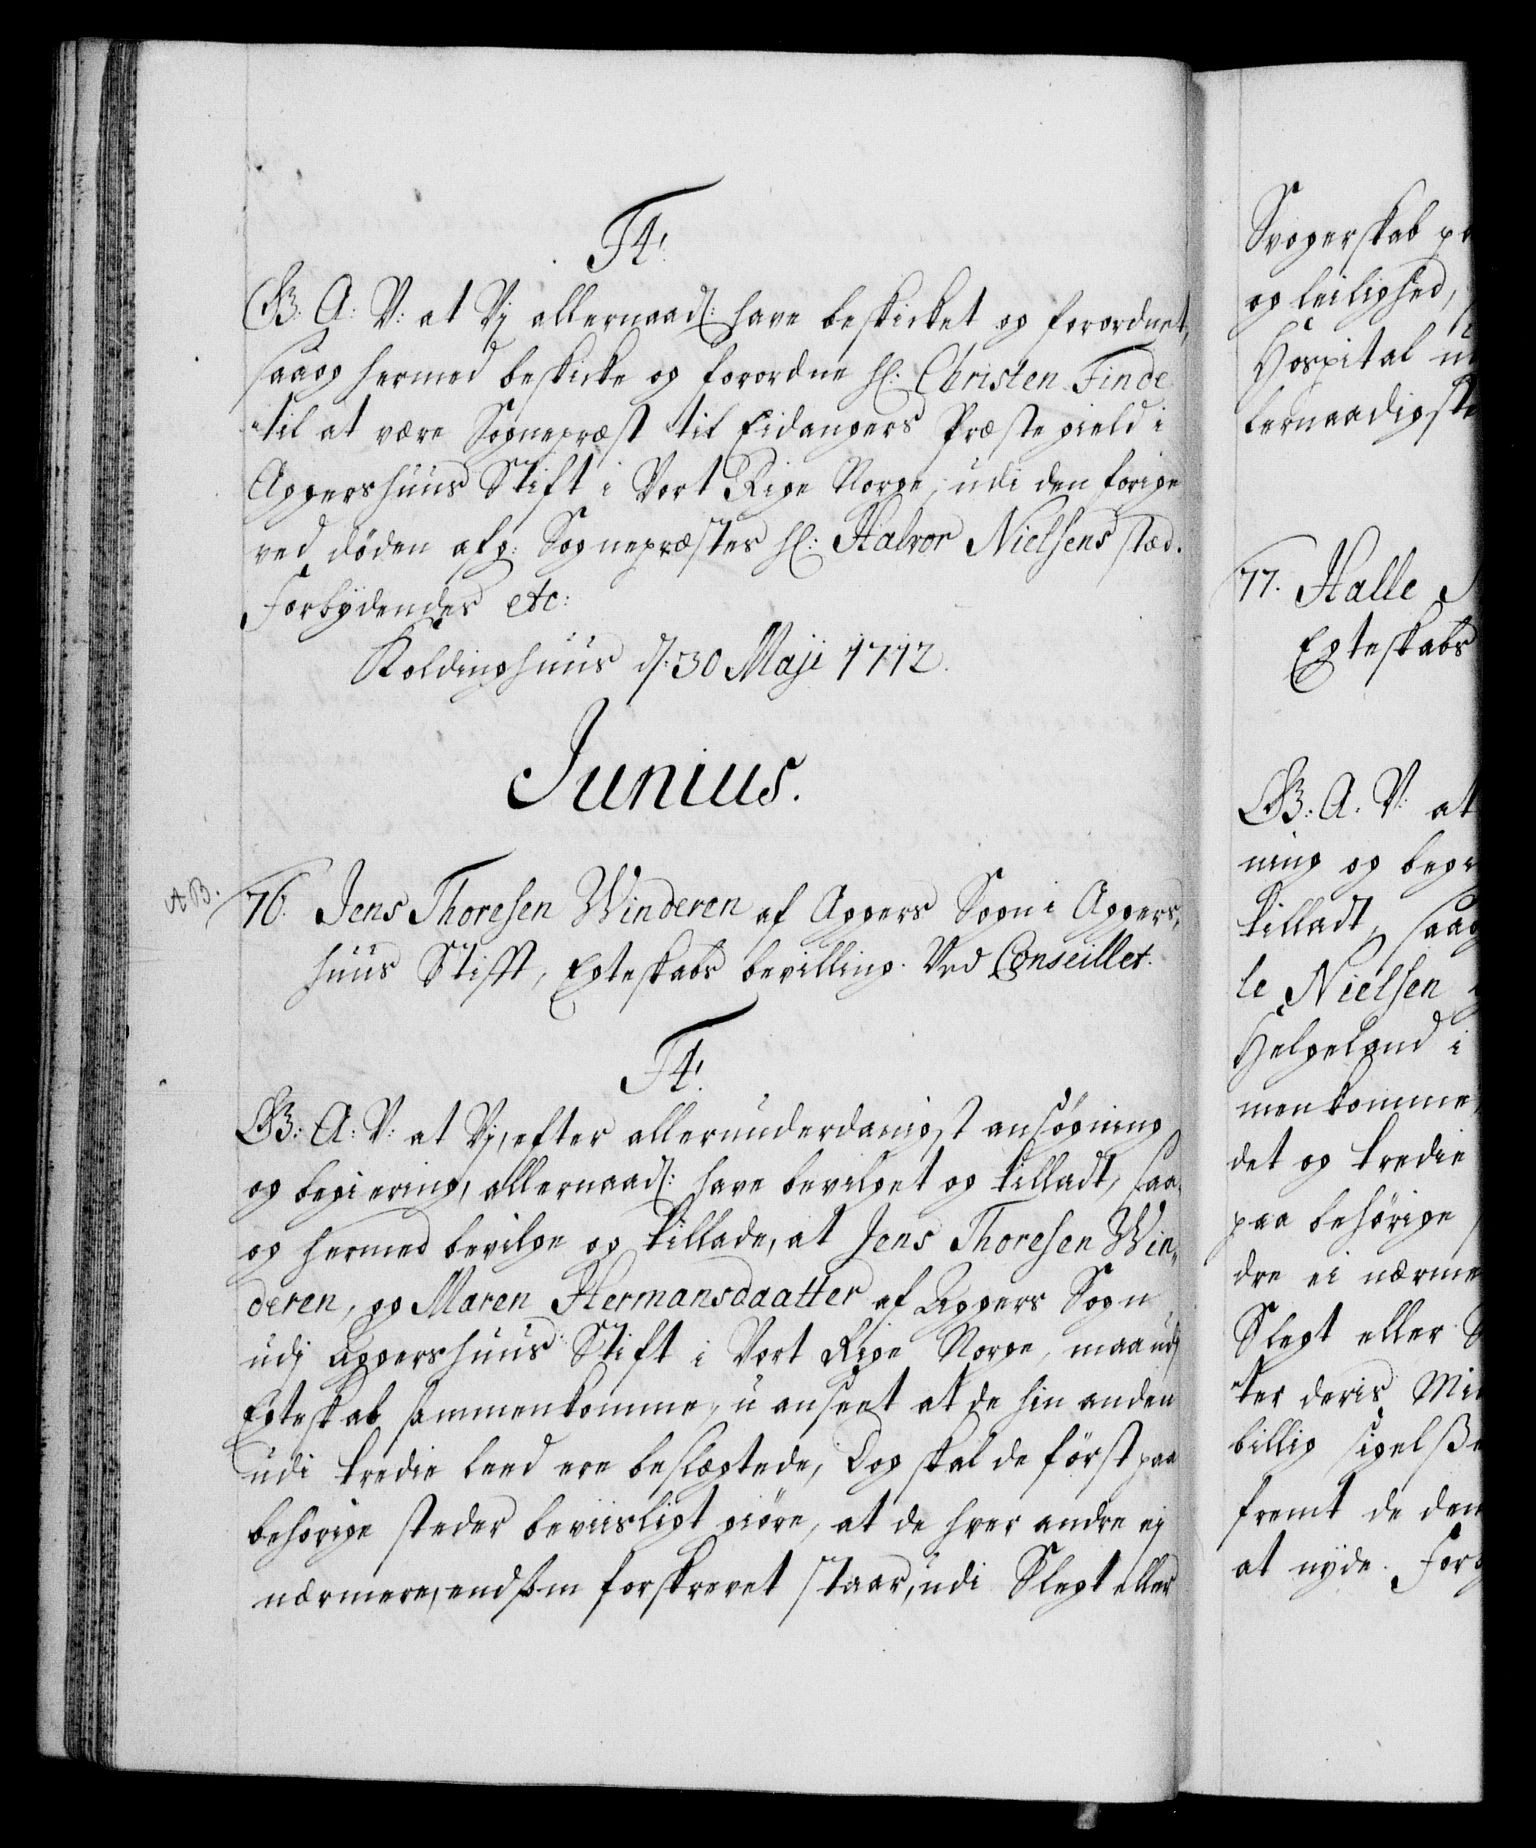 F4.
G. A: V: at Vj allernaad: have beskicket og forordnet,
saa og hermed beskicke og forordne Hr: Christen Finde
til at være Sognepræst til Eidangers Præstegield i
Aggershuus Stift i Vort Rige Norge, udi den forige
ved døden afg: Sognepræstes Hr: Halvor Nielsens stæd.
Forbydendes etc:
Koldinghuus d: 30 Maji 1712.
Junius.
76. Jens Thoresen Winderen af Aggers Sogn i Aggers,
huus Stifft, Egteskabs bevilling. Ved Conseillet.
F4.
G: A: V: at Vj, efter allerunderdanigst ansøgning
og begiering, allernaad: have bevilget og tilladt, saa,
og hermed bevilge og tillade, at Jens Thoresen Win,,
deren, og Maren Hermansdaatter af Aggers Sogn
udj Aggershuus Stift i Vort Rige Norge, maa udj
Egteskab sammenkomme, uanseet at de hin anden
udi tredie leed ere beslægtede, Dog skal de først paa
behørige steder beviisligt giøre, at de hver andre ej
nærmere, end som forskrevet staar, udi Slegt eller
Svogerskab
og leilighed,
Hospital
lernaadigste
77. Halle
Egteskabs
G: A: V: at
ning og begi
tilladt, saa
le Nielsen
Helgeland i
menkomme,
det og tredie
paa behørige
dre ei nærme
Slegt eller
tes deris
billig
fremt de den
at nyde. Forb